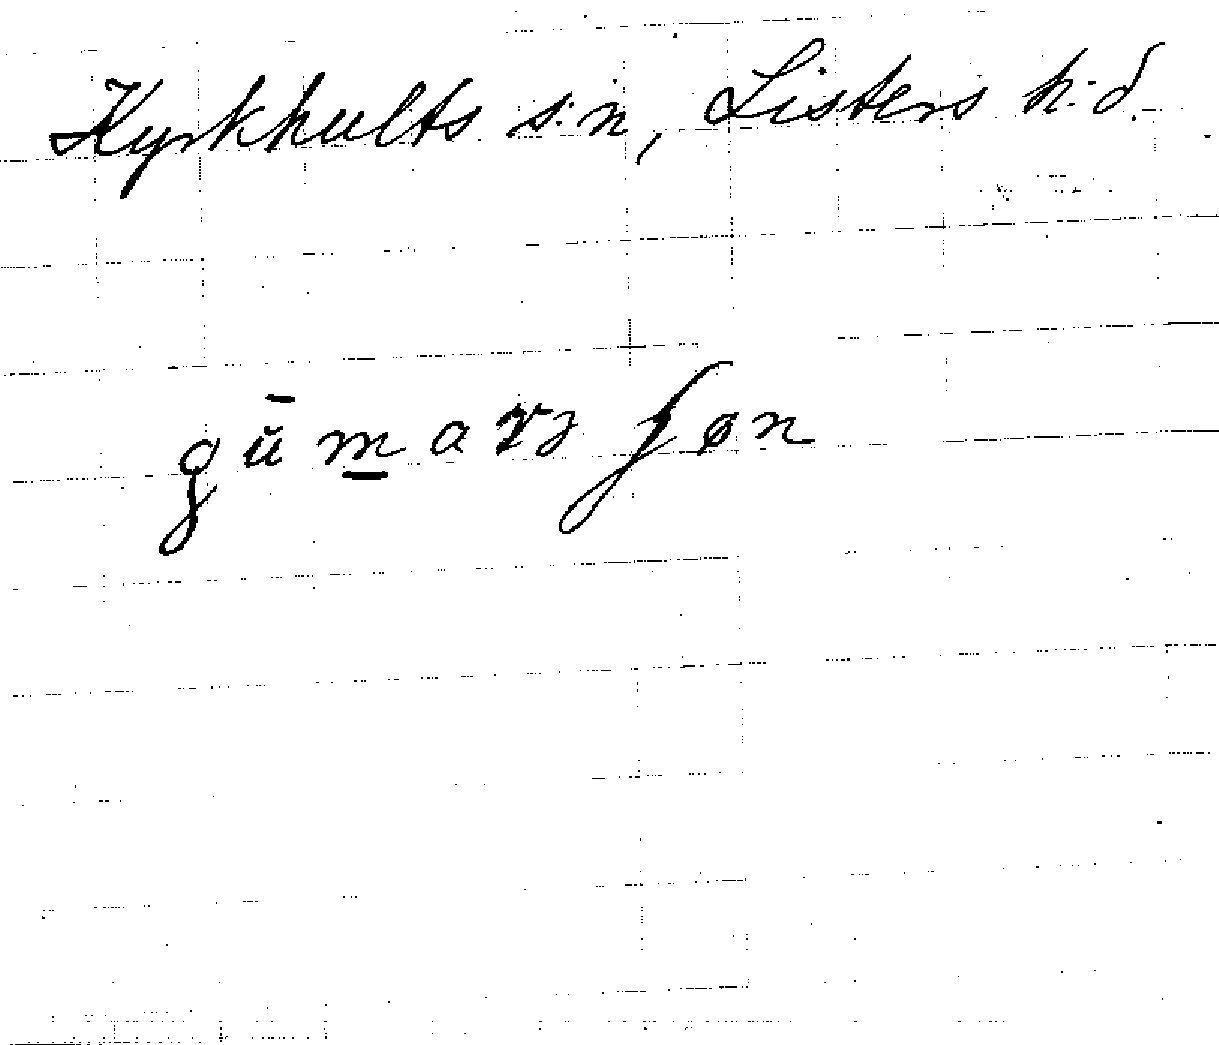 Kyrkhults s:n, Listers h:d.
gŭ̄m̲arsʃøn